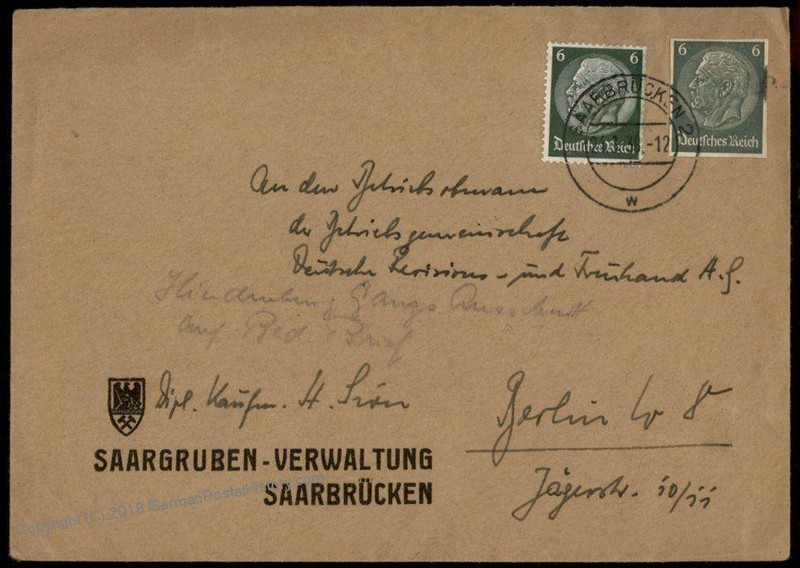 6 6
Deutsches Reich
6 6
Deutsches Reich
SAARBRÜCKEN 2
-12
w
An den Betriebsobmann
der Betriebsgemeinschaft
Deutsche Revisions- und Treuhand A.G.
Hindenburg Ganzs Ausschnitt
auf Bed. Brief
Dipl. Kaufm. H.
Berlin W 8
Jägerstr. 10/11
SAARGRUBEN-VERWALTUNG
SAARBRÜCKEN
Copyright (C) 2018 GermanPostalHistory.com